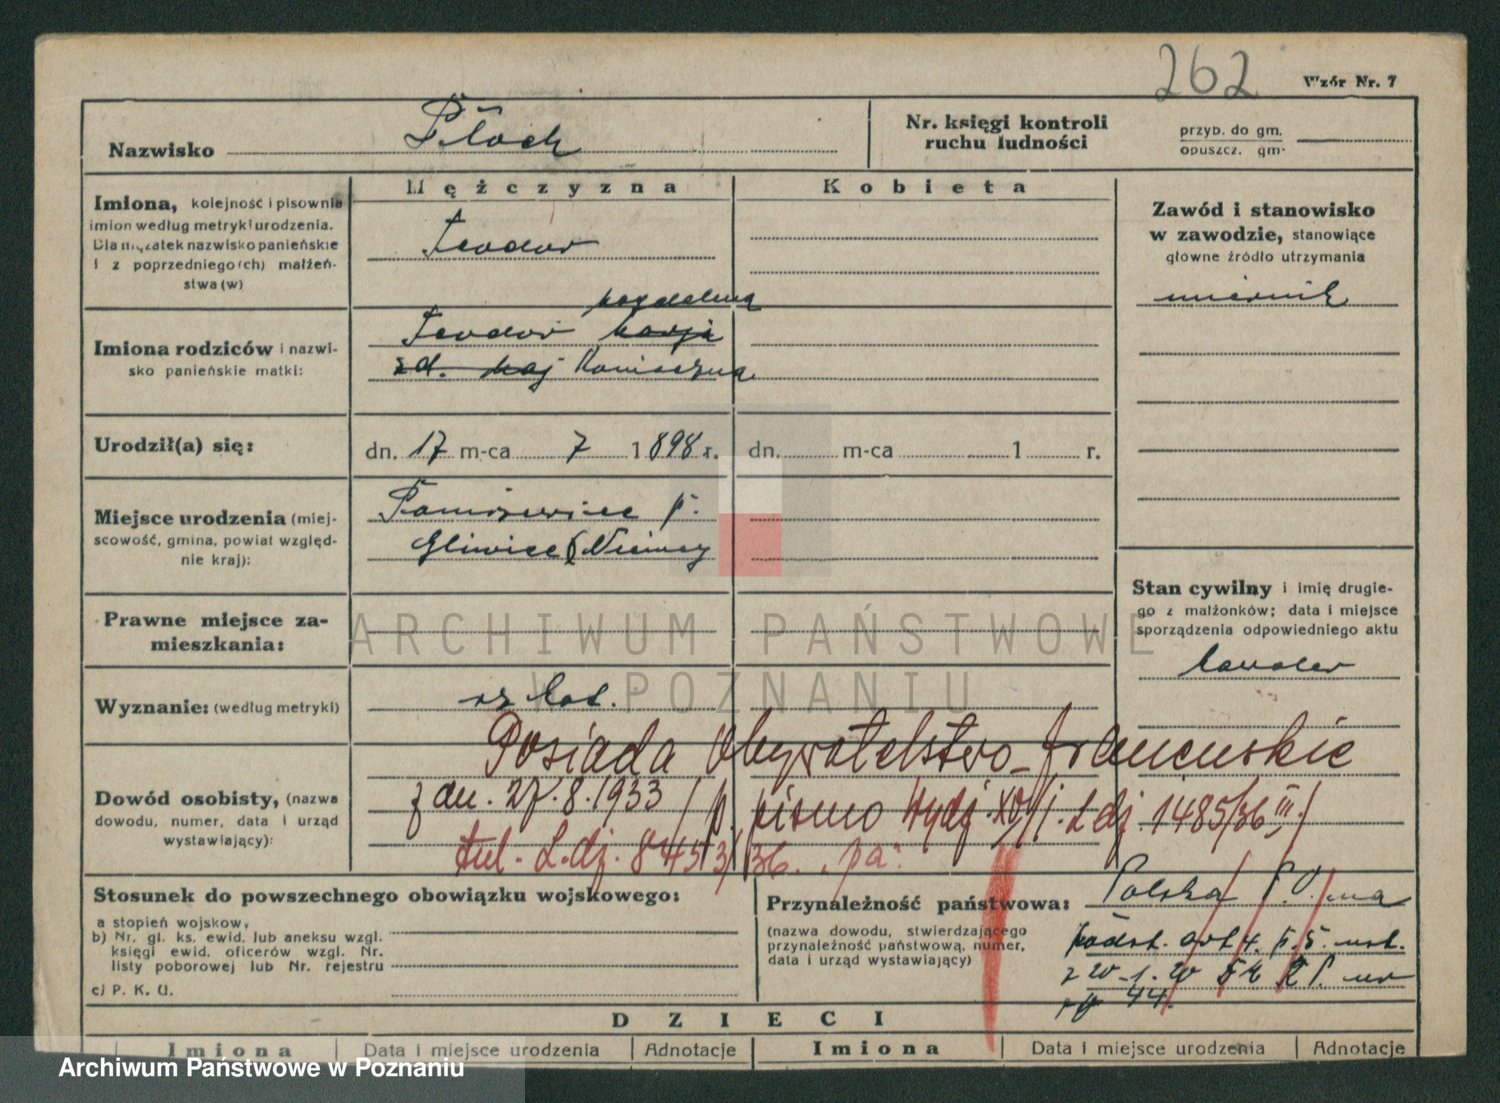 262
Wzór Nr. 7
Nazwisko Płoch
Nr. księgi kontroli
ruchu ludności
przyb. do gm.
opuszcz. gm.
Mężczyzna
Kobieta
Imiona, kolejność i pisownia
imion według metryki urodzenia.
Dla mężatek nazwisko panieńskie
i z poprzedniego(ch) małżeń-
stwa (w)
Teodor
Zawód i stanowisko
w zawodzie, stanowiące
główne źródło utrzymania
miernik
Imiona rodziców i nazwi-
sko panieńskie matki:
Magdalena
Teodor
Konieczna
Urodził(a) się:
dn. 17 m-ca 7 1898 r.
dn. m-ca 1 r.
Miejsce urodzenia (miej-
scowość, gmina, powiat względ-
nie kraj):
p.
Gliwice (Niemcy
Stan cywilny i imię drugie-
go z małżonków; data i miejsce
sporządzenia odpowiedniego aktu
kawaler
Prawne miejsce za-
mieszkania:
ARCHIWUM PAŃSTWOWE
W POZNANIU
Wyznanie: (według metryki)
rz kat.
Dowód osobisty, (nazwa
dowodu, numer, data i urząd
wystawiający):
Posiada obywatelstwo francuskie
z dn. 27.8.1933 / p. pismo Wydz. L.dz. 1485/36 III /
tut. L.dz. 8453/36. "pa"
Stosunek do powszechnego obowiązku wojskowego:
a stopień wojskowy
b) Nr. gl. ks. ewid. lub aneksu wzgl.
księgi ewid. oficerów wzgl. Nr.
listy poborowej lub Nr. rejestru
c) P. K. U.
Przynależność państwowa:
(nazwa dowodu, stwierdzającego
przynależność państwową, numer,
data i urząd wystawiający)
Polska na
podst. art 4. p. 5. ust.
z 20.1.20 Dz R P. nr
44.
DZIECI
Imiona
Data i miejsce urodzenia
Adnotacje
Imiona
Data i miejsce urodzenia
Adnotacje
Archiwum Państwowe w Poznaniu